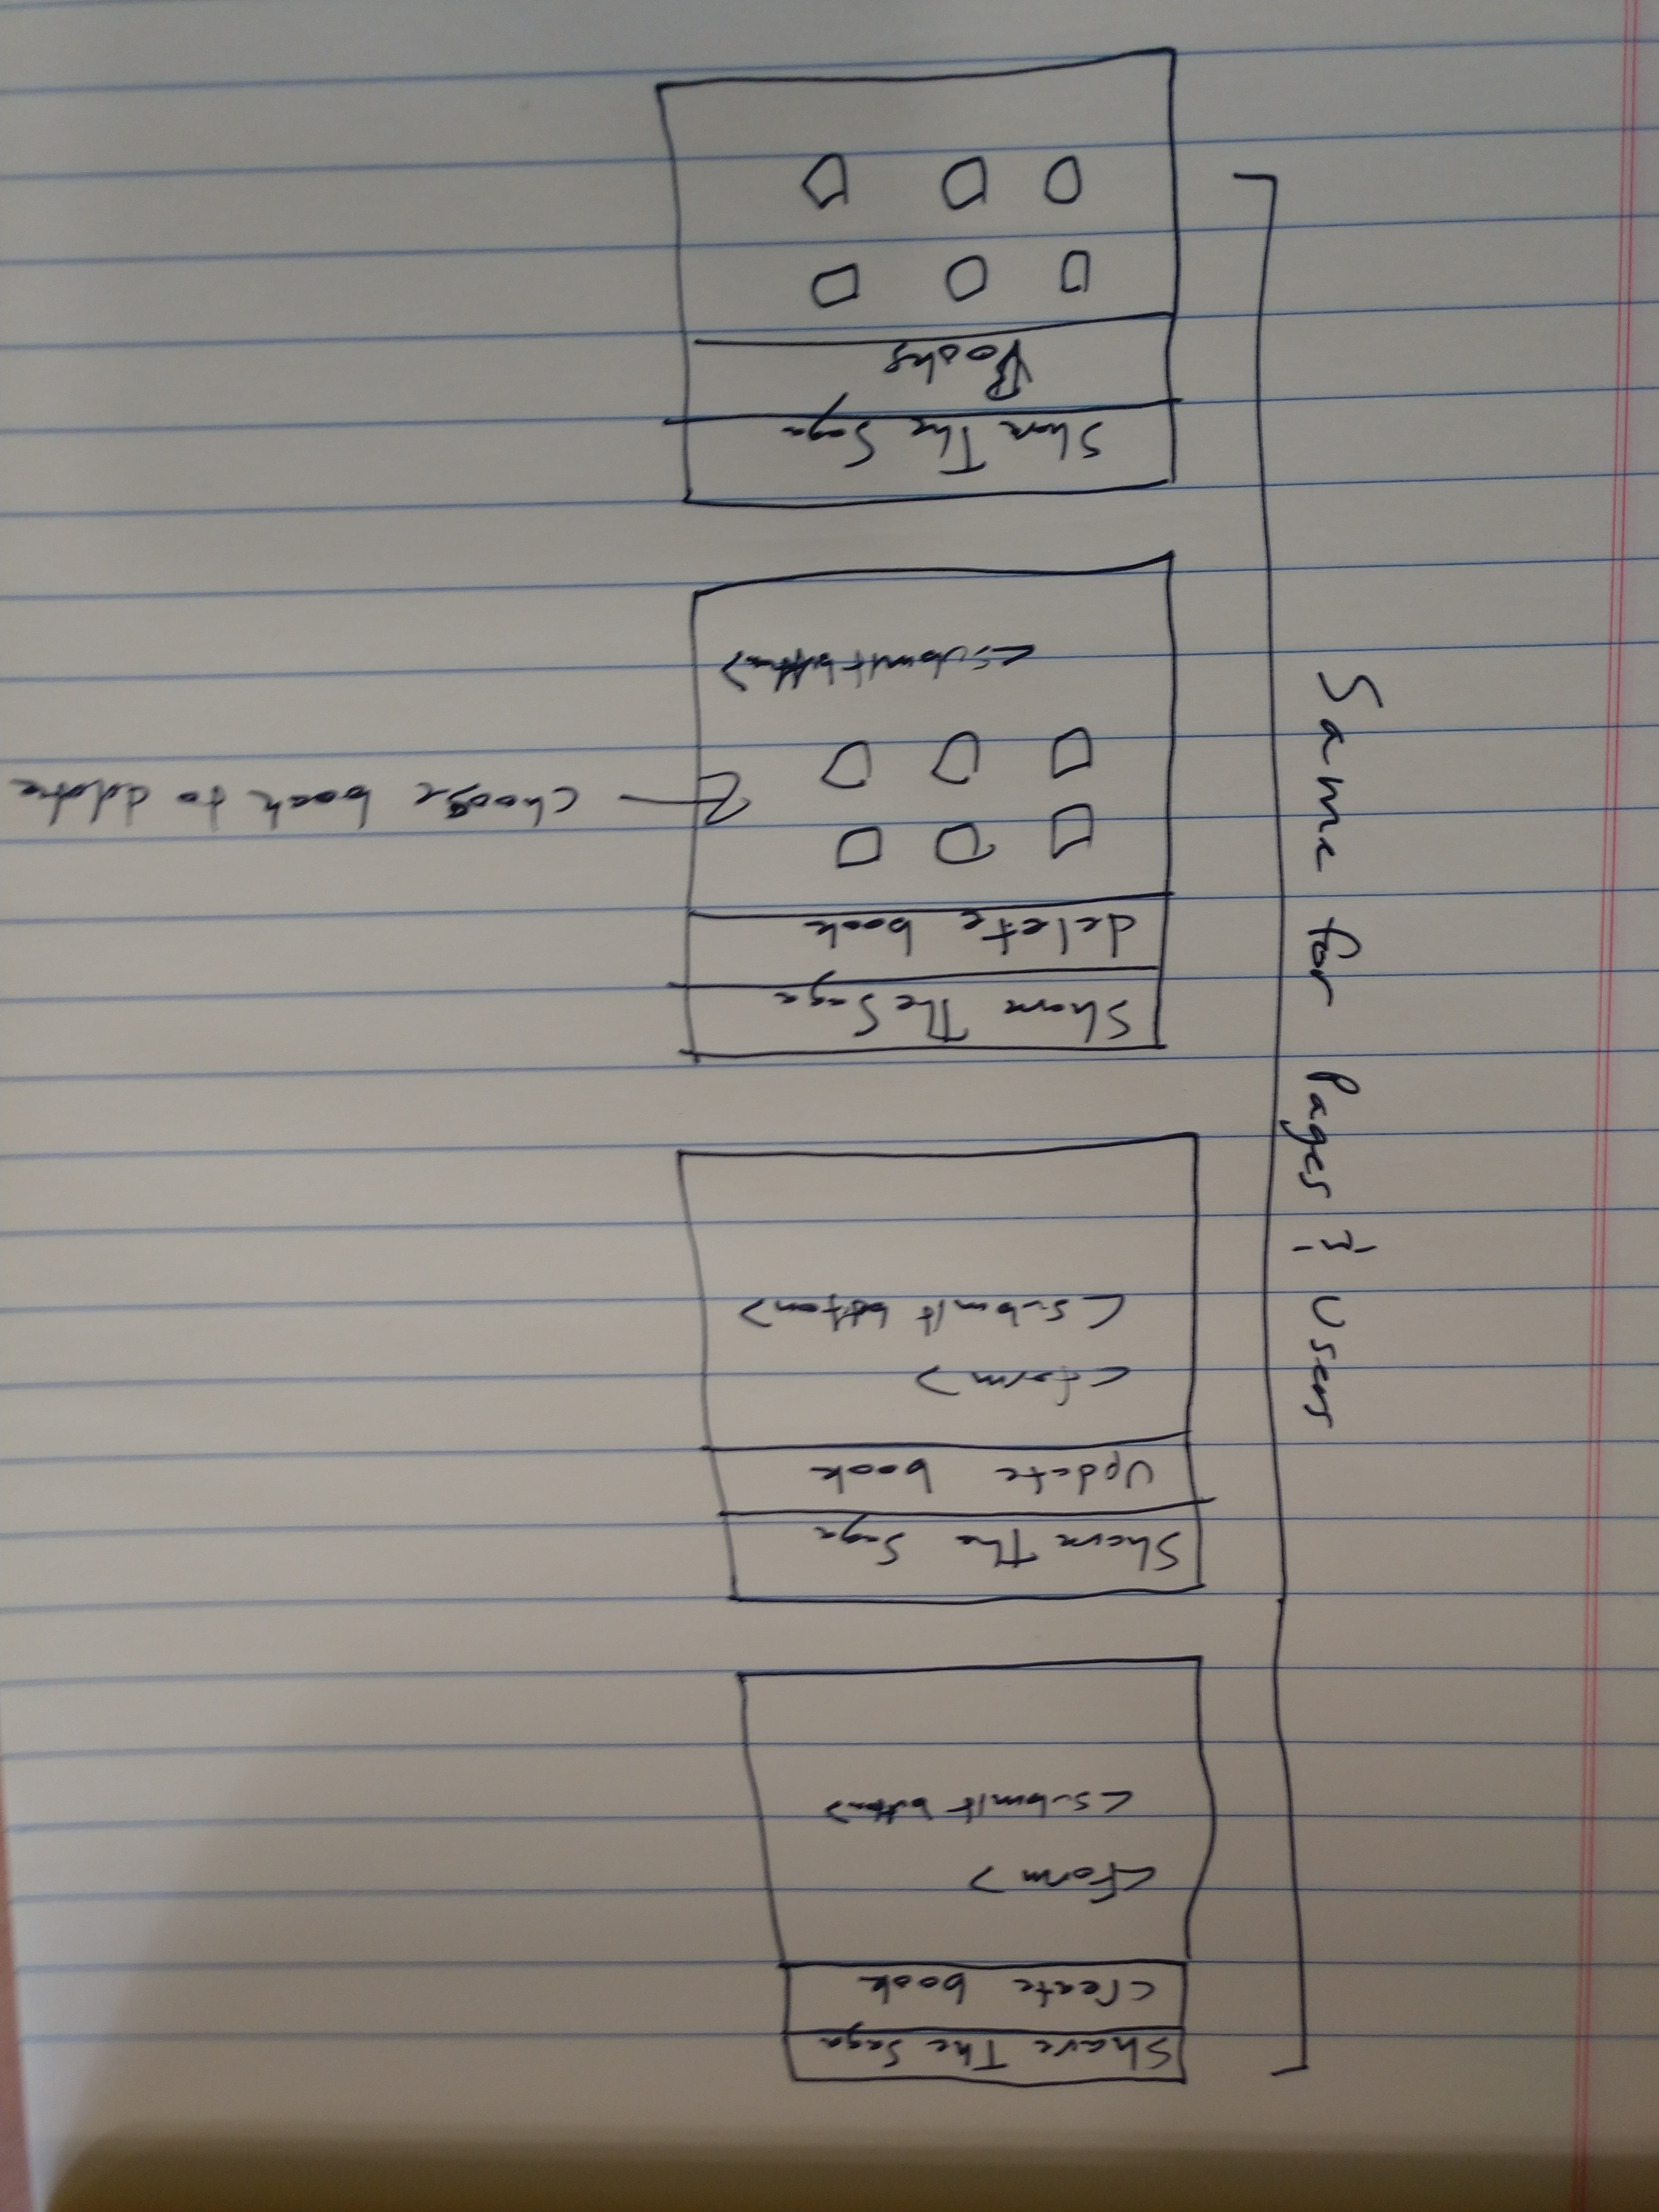 Share The Saga
Create book
<Form>
<submit button>
Share The Saga
Update book
<form>
<submit button>
Share The Saga
delete book
choose book to delete
<submit button>
Share The Saga
Books
Same for Pages & Users